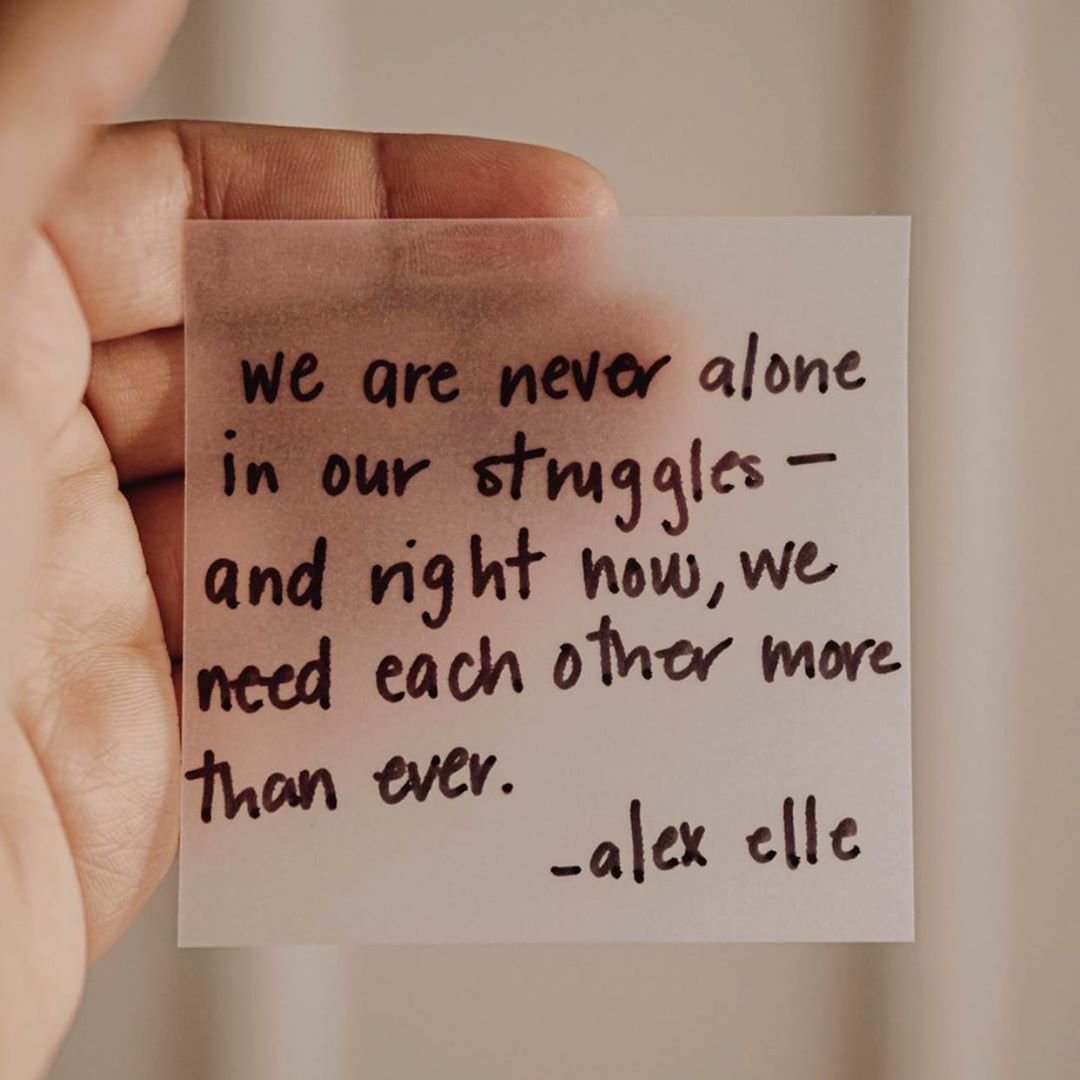 we are never alone
in our struggles —
and right now, we
need each other more
than ever.
-alex elle